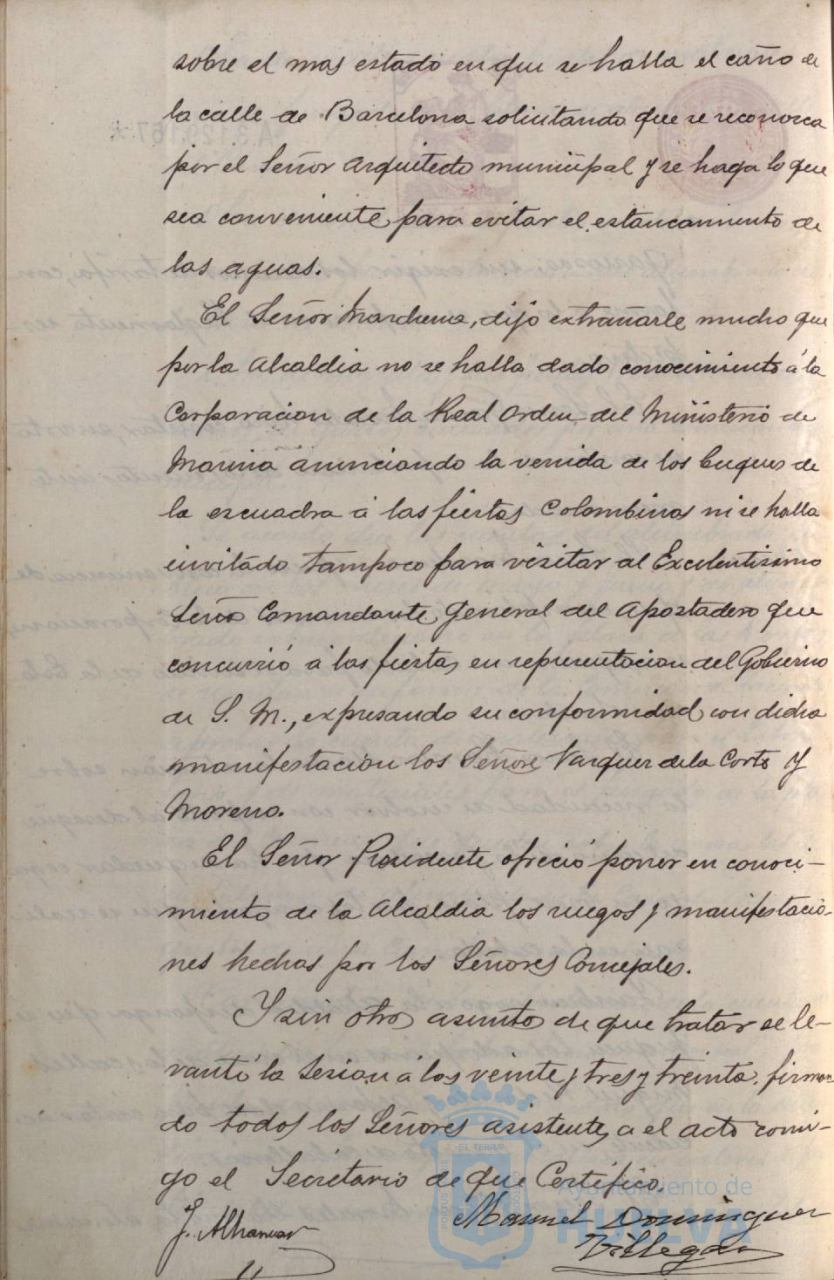 sobre el mas estado en que se halla el caño de
la calle de Barcelona solicitando que se reconozca
por el Señor Arquitecto municipal y se haga lo que
sea conveniente para evitar el estancamiento de
las aguas.
El Señor Marchena, dijo extrañarle mucho que
por la Alcaldia no se halla dado conocimiento á la
Corporacion de la Real Orden del Ministerio de
Marina anunciando la venida de los buques de
la escuadra á las fiestas Colombinas ni se halla
invitado tampoco para visitar al Excelentisimo
Señor Comandante General del Apostadero que
concurrió á las fiestas en representacion del Gobierno
de S. M., expresando su conformidad con dicha
manifestacion los Señores Vazquez de la Corte y
Moreno.
El Señor Presidente ofreció poner en conoci-
miento de la Alcaldia los ruegos y manifestacio-
nes hechas por los Señores Concejales.
Y sin otro asunto de que tratar se le-
vantó la Sesion á los veinte y tres y treinta, firman
do todos los Señores asistentes a el acto conmi-
go el Secretario de que Certifico.
J. Alhancar
Manuel Dominguez
Villegas
Ayuntamiento de
HUELVA